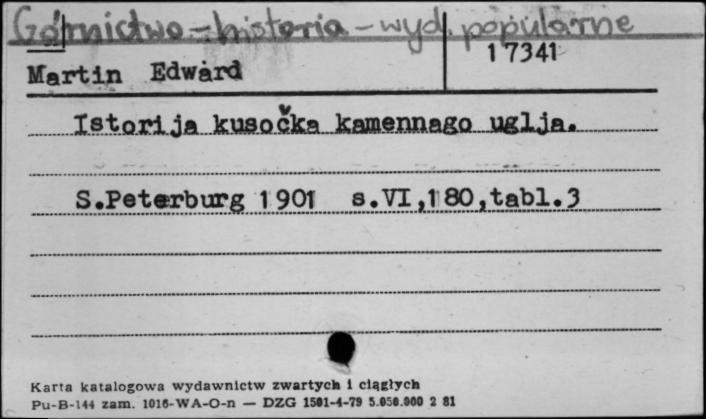 Górnictwo - historia - wyd. popularne
17341
Martin Edward
Istorija kusočka kamennago uglja.
S.Peterburg 1901 s.VI,180,tabl.3
Karta katalogowa wydawnictw zwartych i ciągłych
Pu-B-144 zam. 1016-WA-O-n — DZG 1501-4-79 5.050.000 2 81